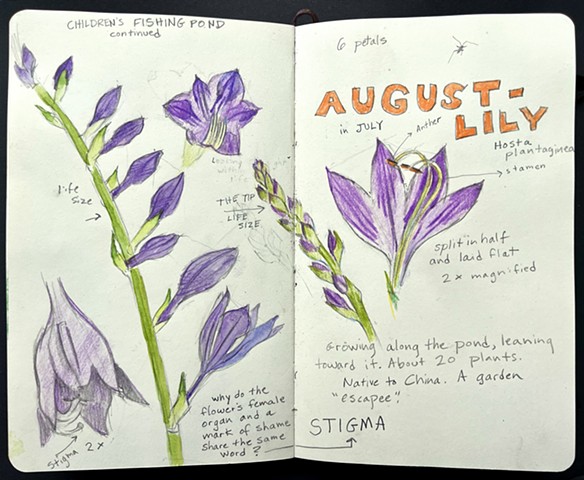 CHILDREN'S FISHING POND
continued
life
size
THE TIP
LIFE
SIZE
why do the
flower's female
organ and a
mark of shame
share the same
word?
Stigma 2x
6 petals
AUGUST-
LILY
in JULY
Anther
Hosta
plantaginea
stamen
split in half
and laid flat
2x magnified
Growing along the pond, leaning
toward it. About 20 plants.
Native to China. A garden
"escapee".
STIGMA